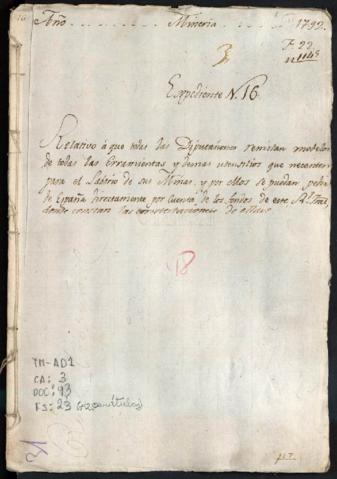 Año Mineria 1792.
3
F 22
Expediente N. 16.
Relativo à que todas las Diputaciones remitan modelos
de todas las erramientas, y demas utensilios que necesiten
para el Laborio de sus Minas, y por ellos se puedan pedir
de España directamente por cuenta de los fondos de este Rl. Tral.
donde constan las contestaciones de ellas
18
TM-AD1
CA: 3
DOC: 93
FS: 23